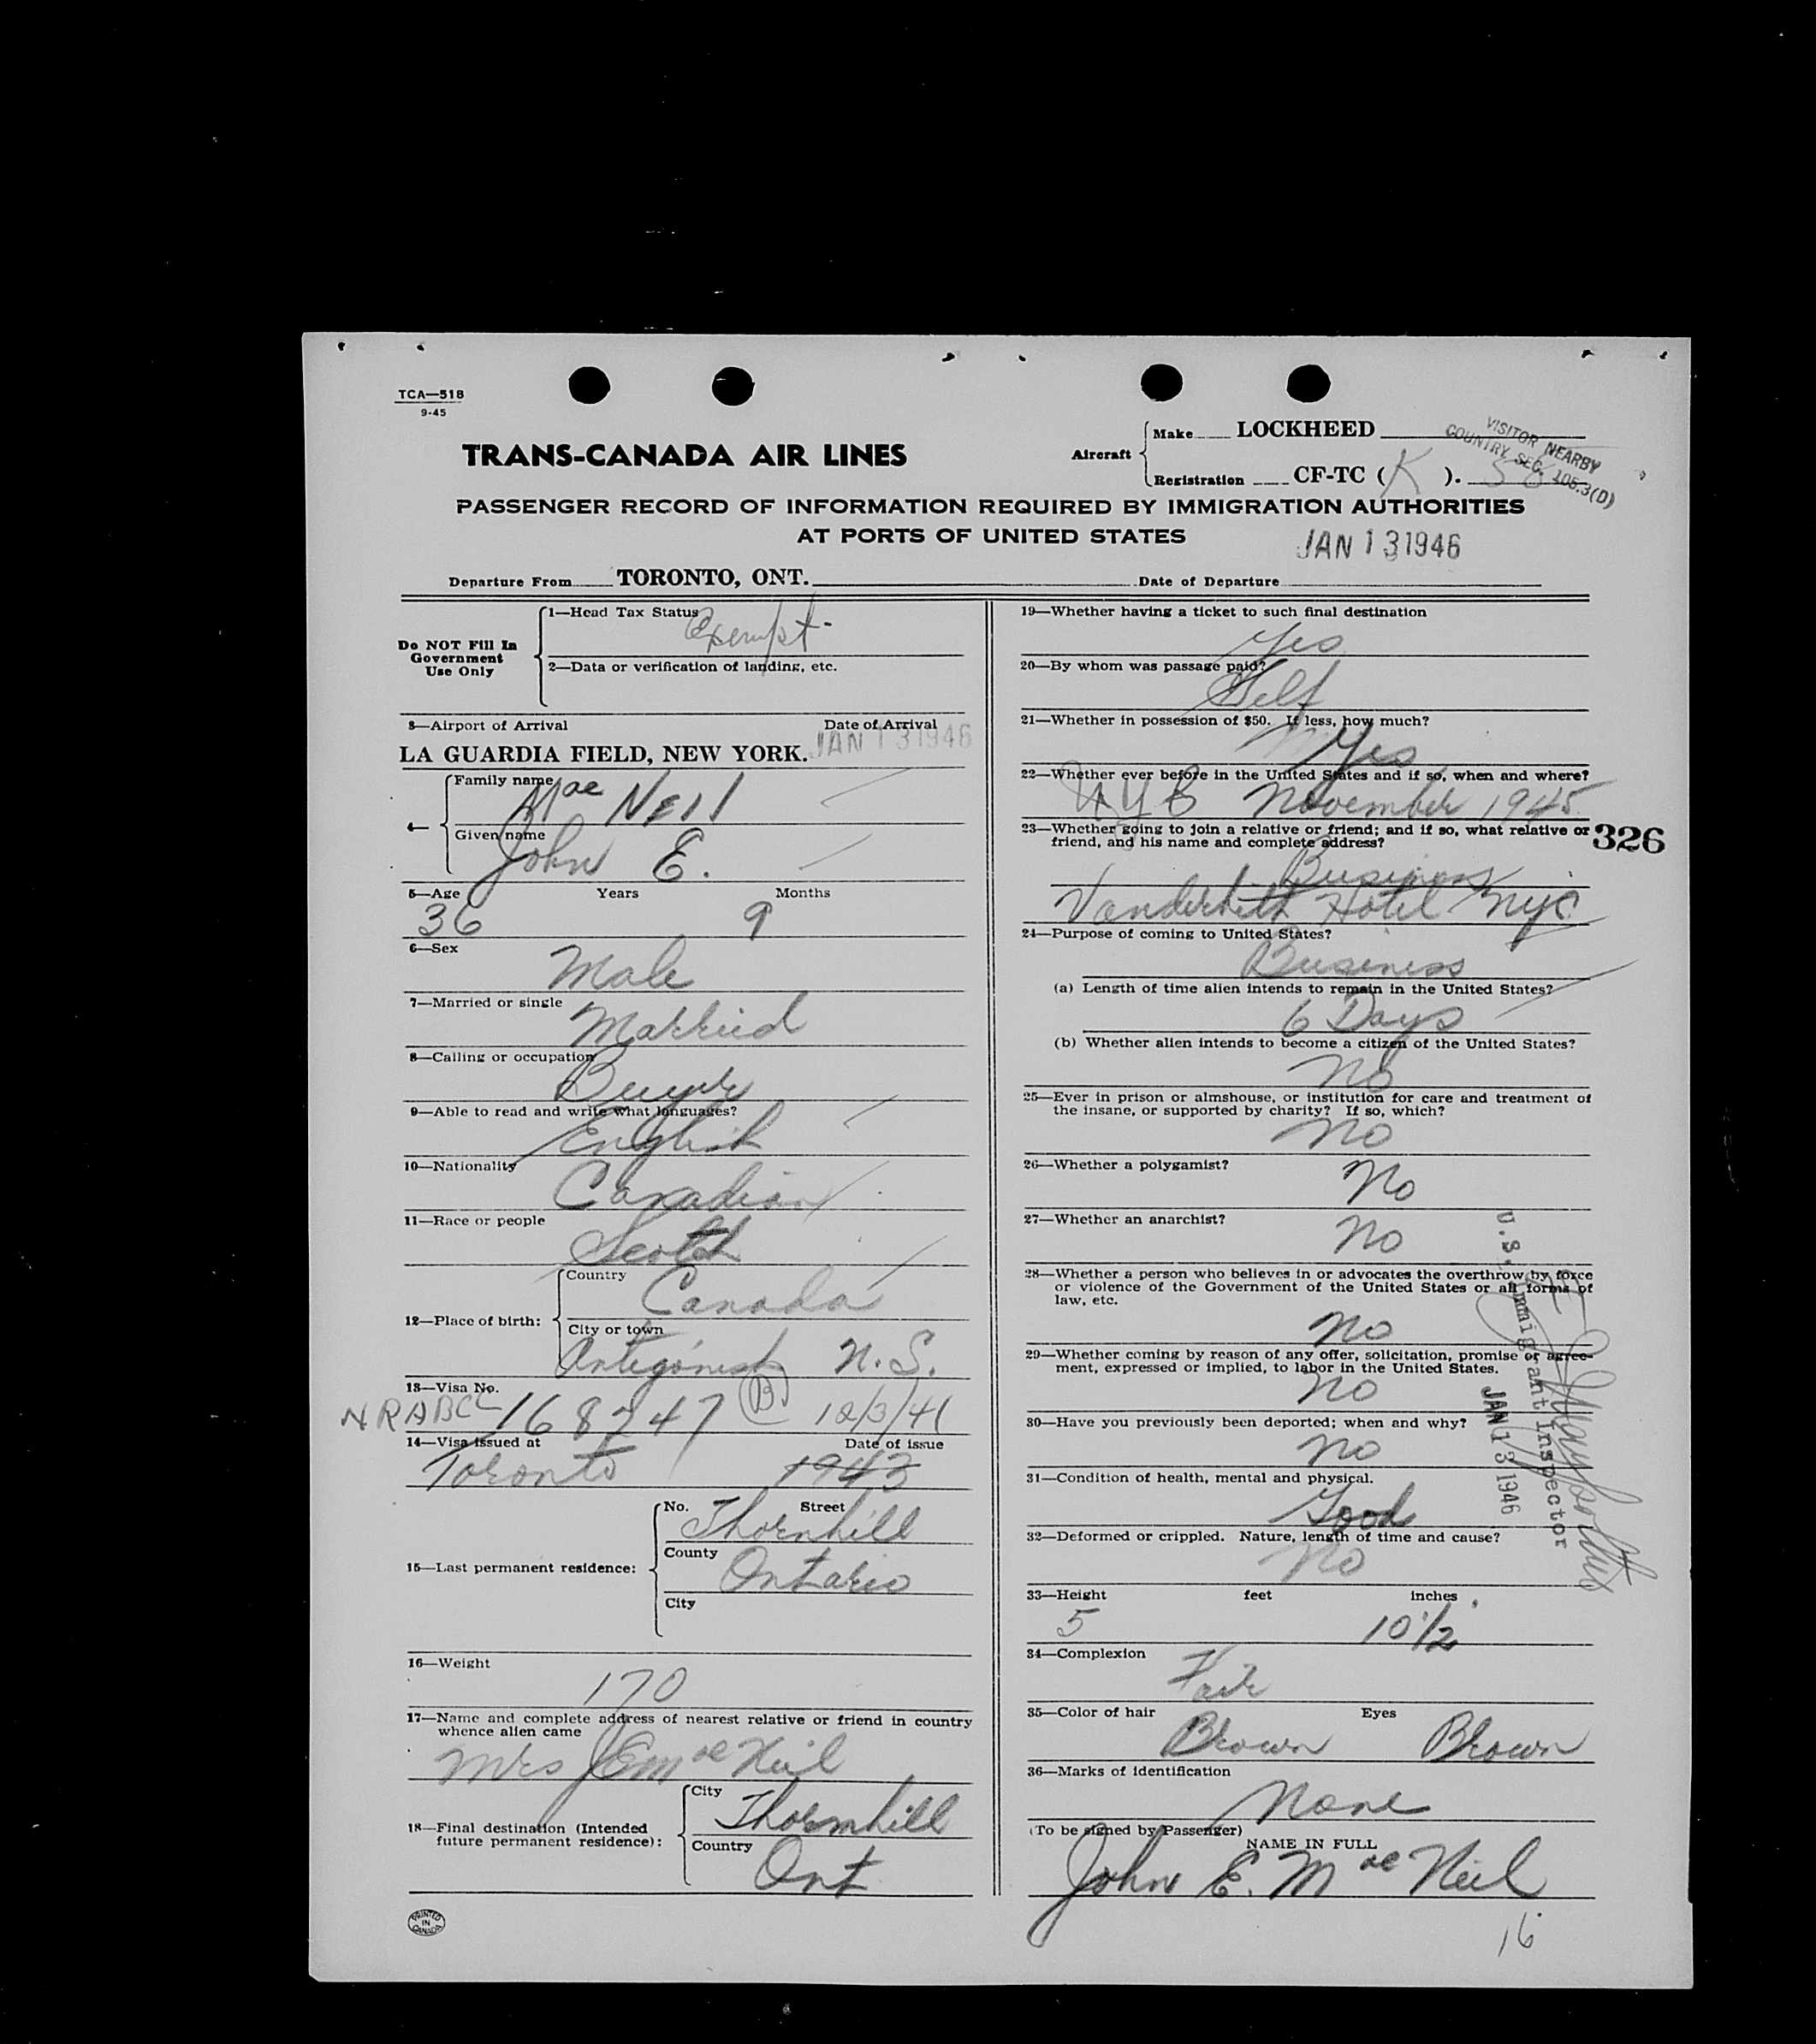 TCA—518
9-45
TRANS-CANADA AIR LINES
Aircraft
Make LOCKHEED
Registration CF-TC (K).
VISITOR NEARBY
COUNTRY SEC. 105.3(D)
PASSENGER RECORD OF INFORMATION REQUIRED BY IMMIGRATION AUTHORITIES
AT PORTS OF UNITED STATES
JAN 13 1946
Departure From TORONTO, ONT. Date of Departure
Do NOT Fill In
Government
Use Only
1—Head Tax Status
Exempt
2—Data or verification of landing, etc.
3—Airport of Arrival Date of Arrival
LA GUARDIA FIELD, NEW YORK. JAN 13 1946
4—
Family name
Mac Neil
Given name
John E.
5—Age Years Months
36 9
6—Sex
Male
7—Married or single
Married
8—Calling or occupation
Buyer
9—Able to read and write what languages?
English
10—Nationality
Canadian
11—Race or people
Scotch
12—Place of birth:
Country
Canada
City or town
Antigonish N.S.
13—Visa No.
NRABCC 168247 (B) 12/3/41
14—Visa issued at Date of issue
Toronto 1943
15—Last permanent residence:
No. Street
Thornhill
County
Ontario
City
16—Weight
170
17—Name and complete address of nearest relative or friend in country
whence alien came
Mrs J E Mac Neil
18—Final destination (Intended
future permanent residence):
City
Thornhill
Country
Ont
PRINTED
IN
CANADA
19—Whether having a ticket to such final destination
Yes
20—By whom was passage paid?
Self
21—Whether in possession of $50. If less, how much?
Yes
22—Whether ever before in the United States and if so, when and where?
NYC November 1945
23—Whether going to join a relative or friend; and if so, what relative or
friend, and his name and complete address?
326
Business
Vanderbilt Hotel NYC
24—Purpose of coming to United States?
Business
(a) Length of time alien intends to remain in the United States?
6 Days
(b) Whether alien intends to become a citizen of the United States?
No
25—Ever in prison or almshouse, or institution for care and treatment of
the insane, or supported by charity? If so, which?
No
26—Whether a polygamist?
No
27—Whether an anarchist?
No
28—Whether a person who believes in or advocates the overthrow by force
or violence of the Government of the United States or all forms of
law, etc.
No
29—Whether coming by reason of any offer, solicitation, promise or agree-
ment, expressed or implied, to labor in the United States.
No
30—Have you previously been deported; when and why?
No
31—Condition of health, mental and physical.
Good
32—Deformed or crippled. Nature, length of time and cause?
No
U.S. Immigrant Inspector
JAN 13 1946
33—Height feet inches
5 10 1/2
34—Complexion
Fair
35—Color of hair Eyes
Brown Brown
36—Marks of identification
None
(To be signed by Passenger)
NAME IN FULL
John E. Mac Neil
16